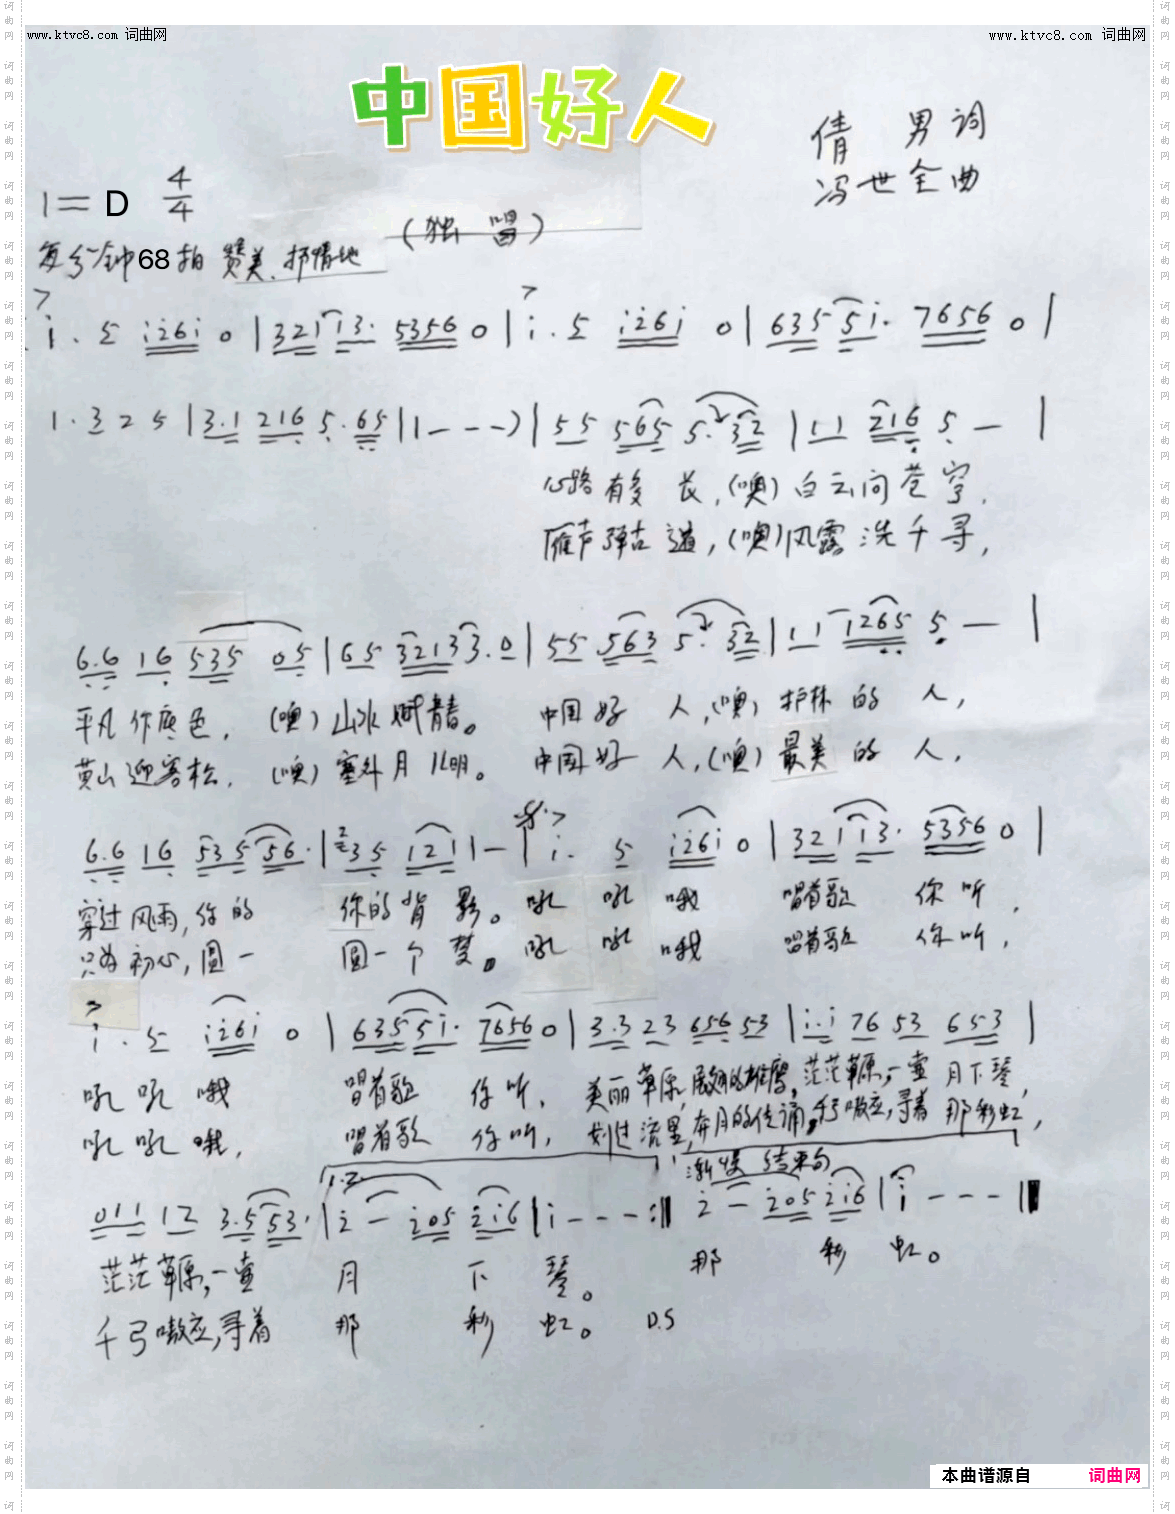 www.ktvc8.com 词曲网
www.ktvc8.com 词曲网
中国好人
倩 男 词
冯世全曲
1=D 4/4
(独 唱)
每分钟68拍 赞美、抒情地
i. 5 i26i 0 | 321 13. 5356 0 | i. 5 i26i 0 | 635 5i. 7656 0 |
1. 3 2 5 | 3.1 216 5. 65 | 1 - - - ) | 55 565 5. 32 | 11 216 5 - |
心路有多 长,(噢)白云问苍穹,
雁声弹古道,(噢)风露洗千寻,
6.6 16 535 05 | 65 32133.0 | 55 563 5. 32 | 11 1265 5 - |
平凡作底色,(噢)山水赋青。 中国好 人,(噢)护林的 人,
黄山迎客松,(噢)塞外月儿明。 中国好 人,(噢)最美的 人,
6.6 16 535 56. | 35 121 1 - | i. 5 i26i 0 | 321 13. 5356 0 |
穿过风雨,你的 你的背 影。 吼 吼 哦 唱首歌 你 听,
只为初心,圆一 圆一个 梦。 吼 吼 哦 唱首歌 你 听,
i. 5 i26i 0 | 635 5i. 7656 0 | 3.3 23 656 53 | i.i 76 53 653 |
吼 吼 哦 唱首歌 你 听, 美丽草原,展翅的雄鹰,茫茫草原,一壶 月下琴,
吼 吼 哦, 唱首歌 你 听, 划过 流星,奔月的传诵,千弓嗷应,寻着 那彩虹,
渐慢 结束句
1.2.
011 12 3.5 53. | 2 - 205 2i6 | i - - - :‖ 2 - 205 2i6 | i - - - ‖
茫茫草原,一壶 月 下 琴。 那 彩 虹。
千弓嗷应,寻着 那 彩 虹。 D.S
本曲谱源自 词曲网